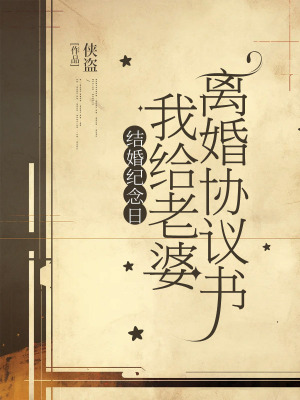 结婚纪念日
我给老婆
离婚协议书
侠盗
[作品]